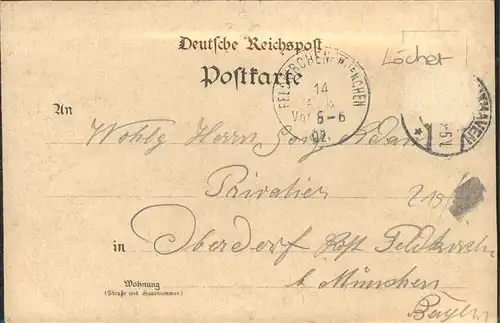 Deutsche Reichspost
Löcher
Postkarte
FELDKIRCHEN B. MÜNCHEN
14
Vor 5-6
02
An
Wohlg Herrn Georg
Privatier
in Oberdorf Post Feldkirchen
b München
Wohnung
(Straße und Hausnummer)
Bayern